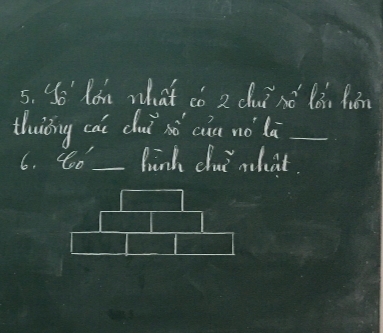 5. Số lớn nhất có 2 chữ số lớn hơn
thương các chữ số của nó là ___
6. Có ___ hình chữ nhật.